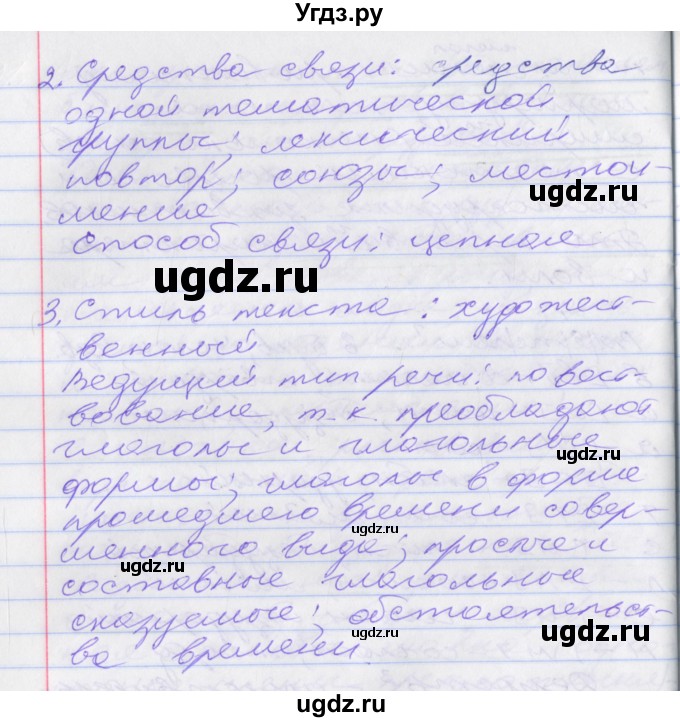 Угдз.ру
2. Средства связи: средства
одной тематической
группы; лексический
повтор; союзы; местои-
мения
Способ связи: цепная
ugdz.ru
ugdz.ru
ugdz.ru
3. Стиль текста: художест-
венный
Ведущий тип речи: повест-
вование, т.к. преобладают
глаголы и глагольные
ugdz.ru
формы; глаголы в форме
прошедшего времени совер-
ugdz.ru
шенного вида; простые и
ugdz.ru
составные глагольные
сказуемые; обстоятельст-
ugdz.ru
ва времени.
ugdz.ru